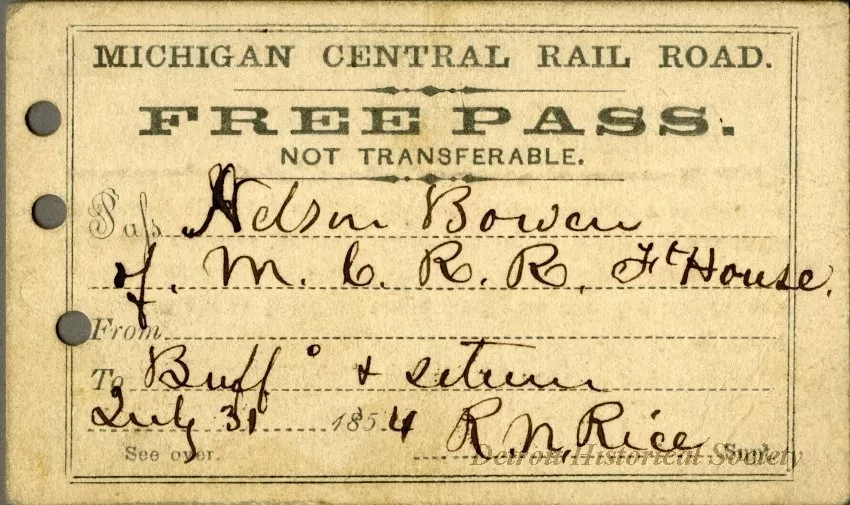 MICHIGAN CENTRAL RAIL ROAD.
FREE PASS.
NOT TRANSFERABLE.
Pass Nelson Bowen
of. M. C. R. R. Ft House.
From
To Buffo & return
July 31 1854 R. N. Rice
See over. Supt.
Detroit Historical Society